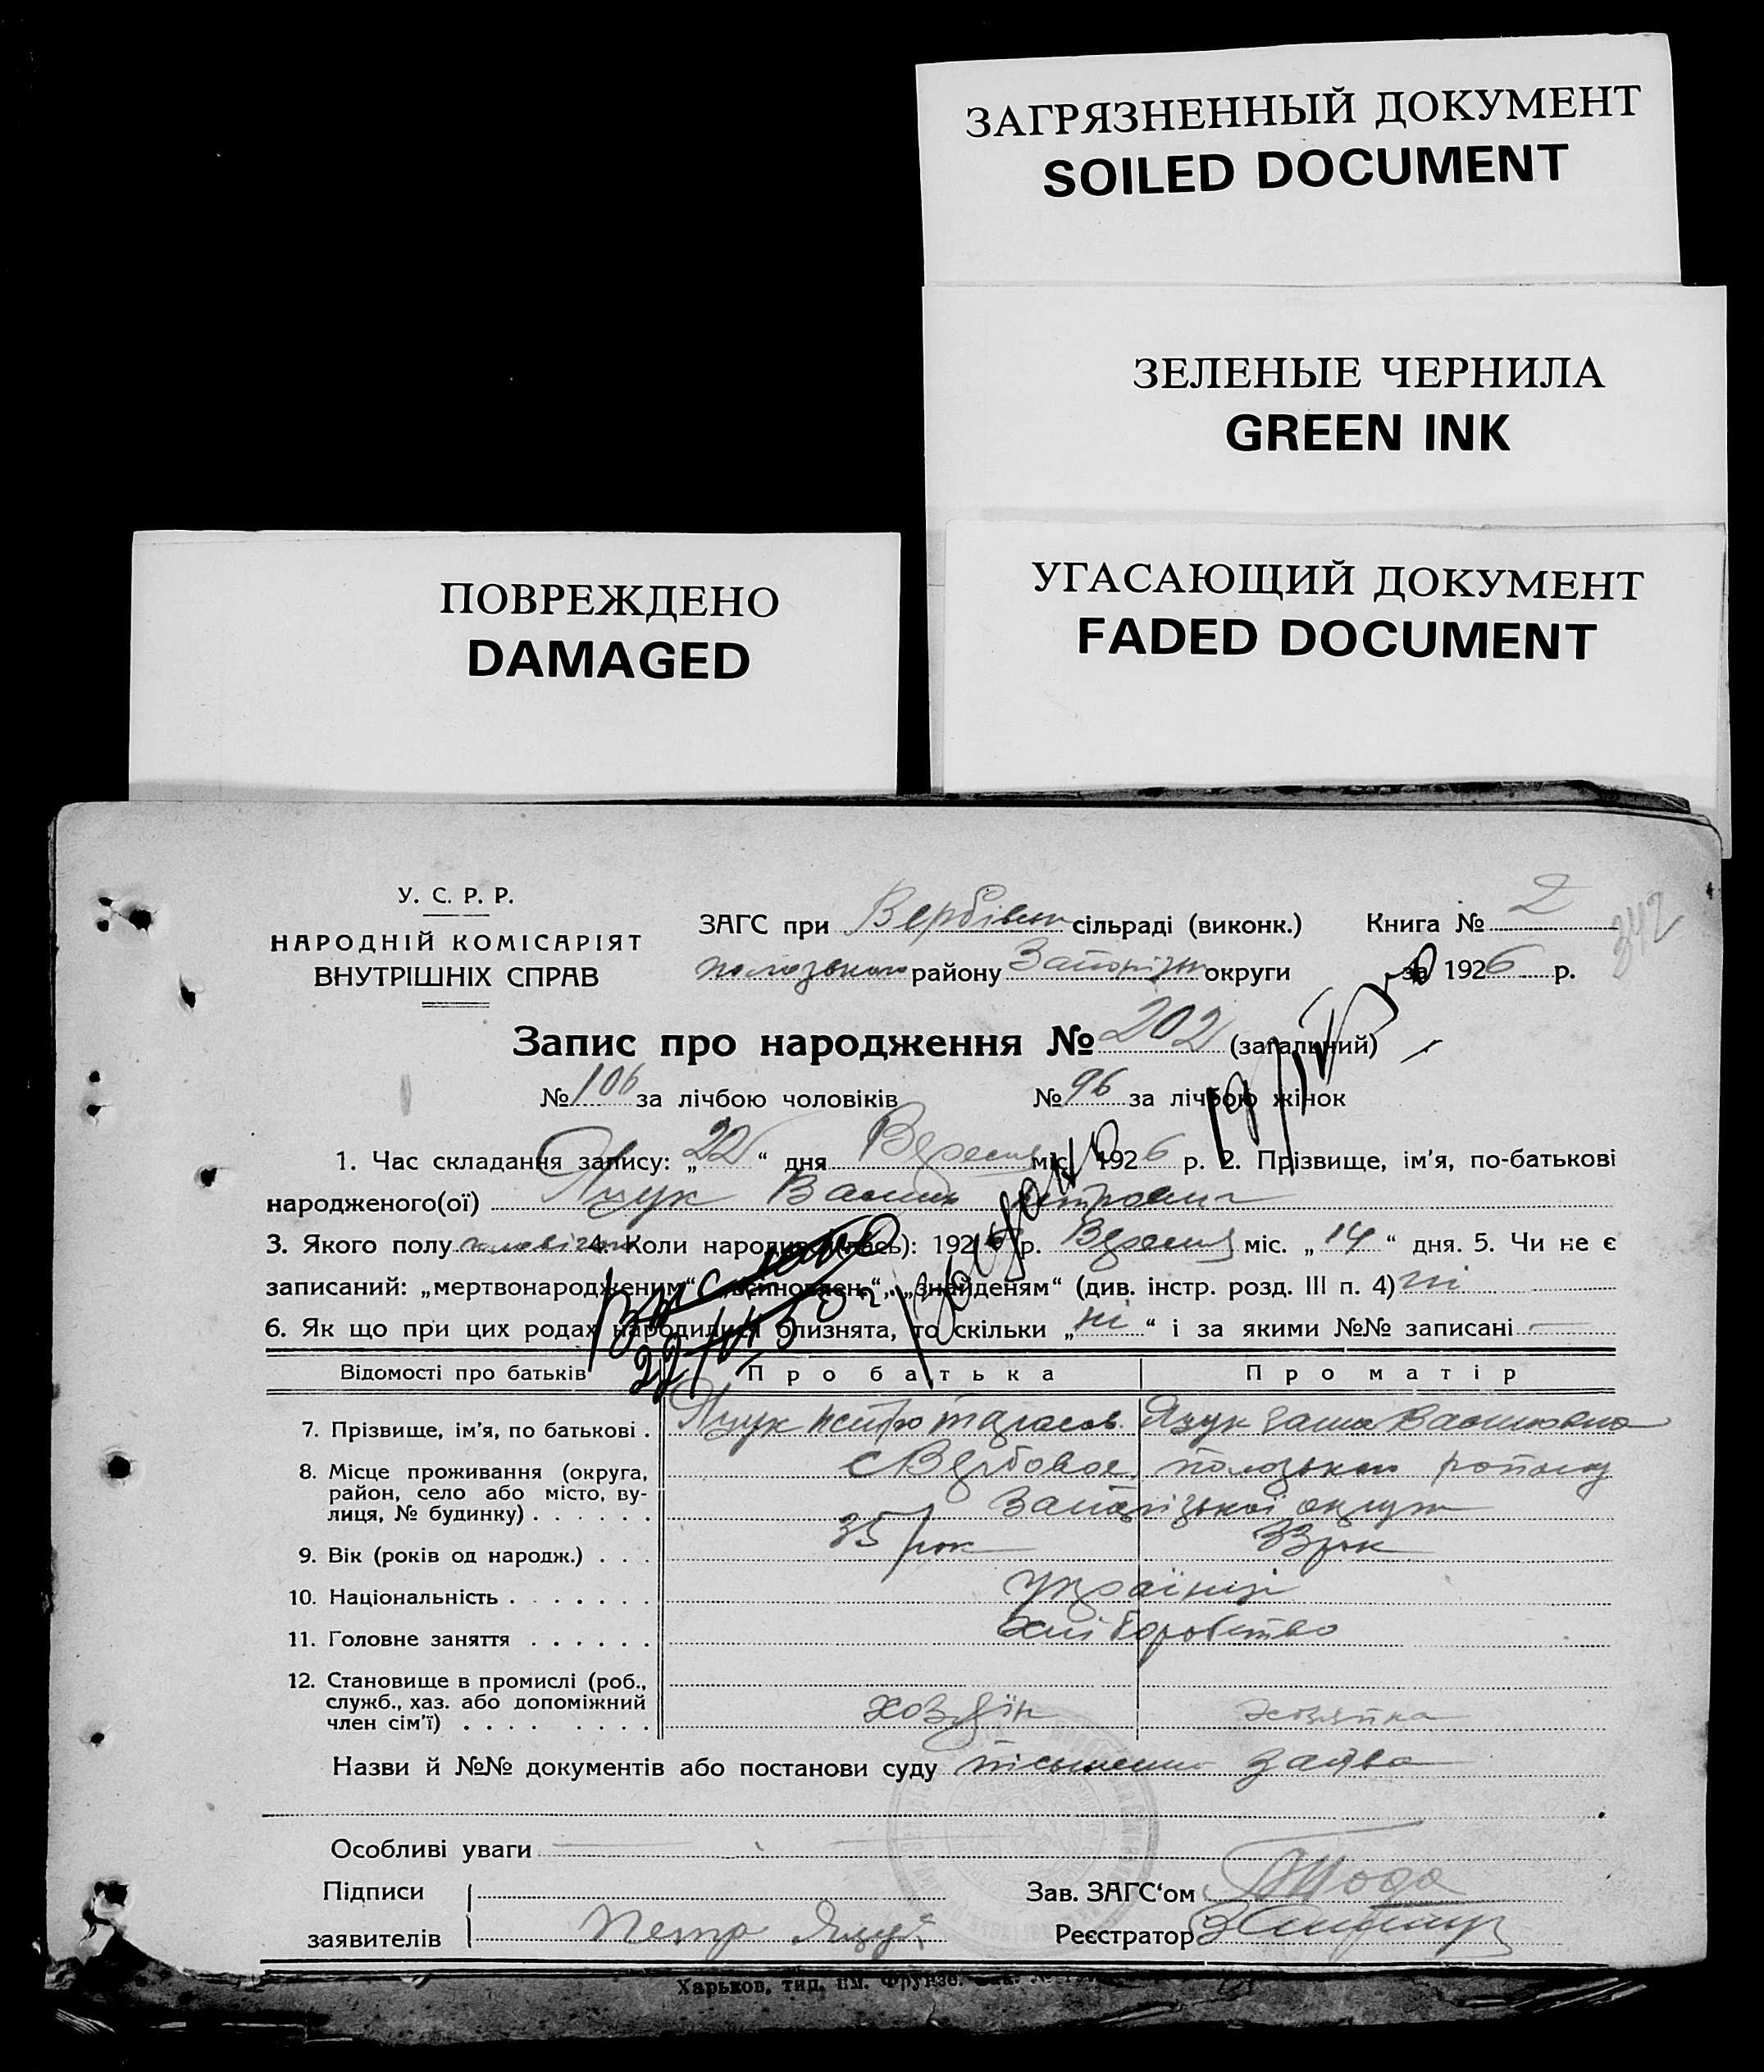 ЗАГРЯЗНЕННЫЙ ДОКУМЕНТ
SOILED DOCUMENT
ЗЕЛЕНЫЕ ЧЕРНИЛА
GREEN INK
УГАСАЮЩИЙ ДОКУМЕНТ
FADED DOCUMENT
ПОВРЕЖДЕНО
DAMAGED
У. С. Р. Р.
НАРОДНІЙ КОМІСАРІЯТ
ВНУТРІШНІХ СПРАВ
ЗАГС при Вербівськ сільраді (виконк.) Книга № 2
342
району Запоріжк округи за 1926 р.
Запис про народження № 202 (загальний)
№ 106 за лічбою чоловіків № 96 за лічбою жінок
1. Час складання запису: „22“ дня Вересня міс. 1926 р. 2. Прізвище, ім'я, по-батькові
народженого(ої) Яцук Василь Петрович
3. Якого полу 4. Коли народився(лась): 1926 р. Вересня міс. „14“ дня. 5. Чи не є
записаний: „мертвонародженим“, „всиновлен.“, „знайденям“ (див. інстр. розд. III п. 4) ні
6. Як що при цих родах народилися близнята, то скільки „ні“ і за якими №№ записані —
Відомості про батьків Про батька Про матір
7. Прізвище, ім'я, по батькові . Яцук Петро Тарасов. Яцук Василовна
8. Місце проживання (округа, с Вербовое,
район, село або місто, ву-
лиця, № будинку) . . . . . . Запорізької округи
9. Вік (років од народж.) . . . 35 рок 33 рок
10. Національність . . . . . . . Українці
11. Головне заняття . . . . . . Хліборобство
12. Становище в промислі (роб.,
служб., хаз. або допоміжний
член сім'ї) . . . . . . . . хозяїн хозяйка
Назви й №№ документів або постанови суду заява
Особливі уваги —
Підписи
заявителів Петр Яцук
Зав. ЗАГС‘ом
Реєстратор
Харьков, тип. им. Фрунзе.